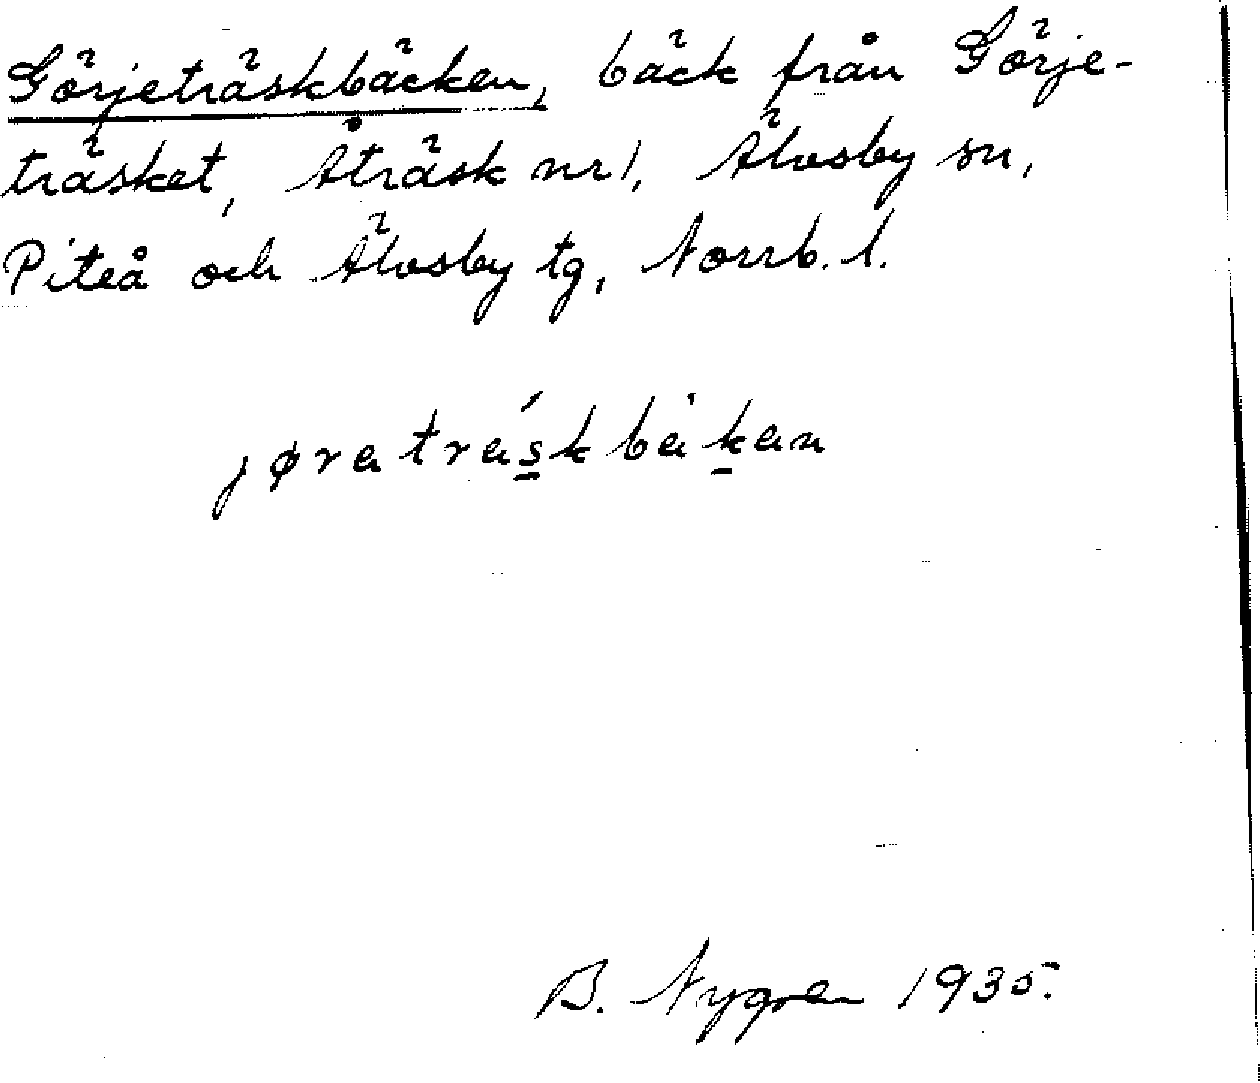 Görjeträskbäcken, bäck från Görje-
träsket, Åträsk nr 1, Älvsby sn,
Piteå och Älvsby tg, Norrb. l.
jøratráskbäkan
B. Nygren 1935.